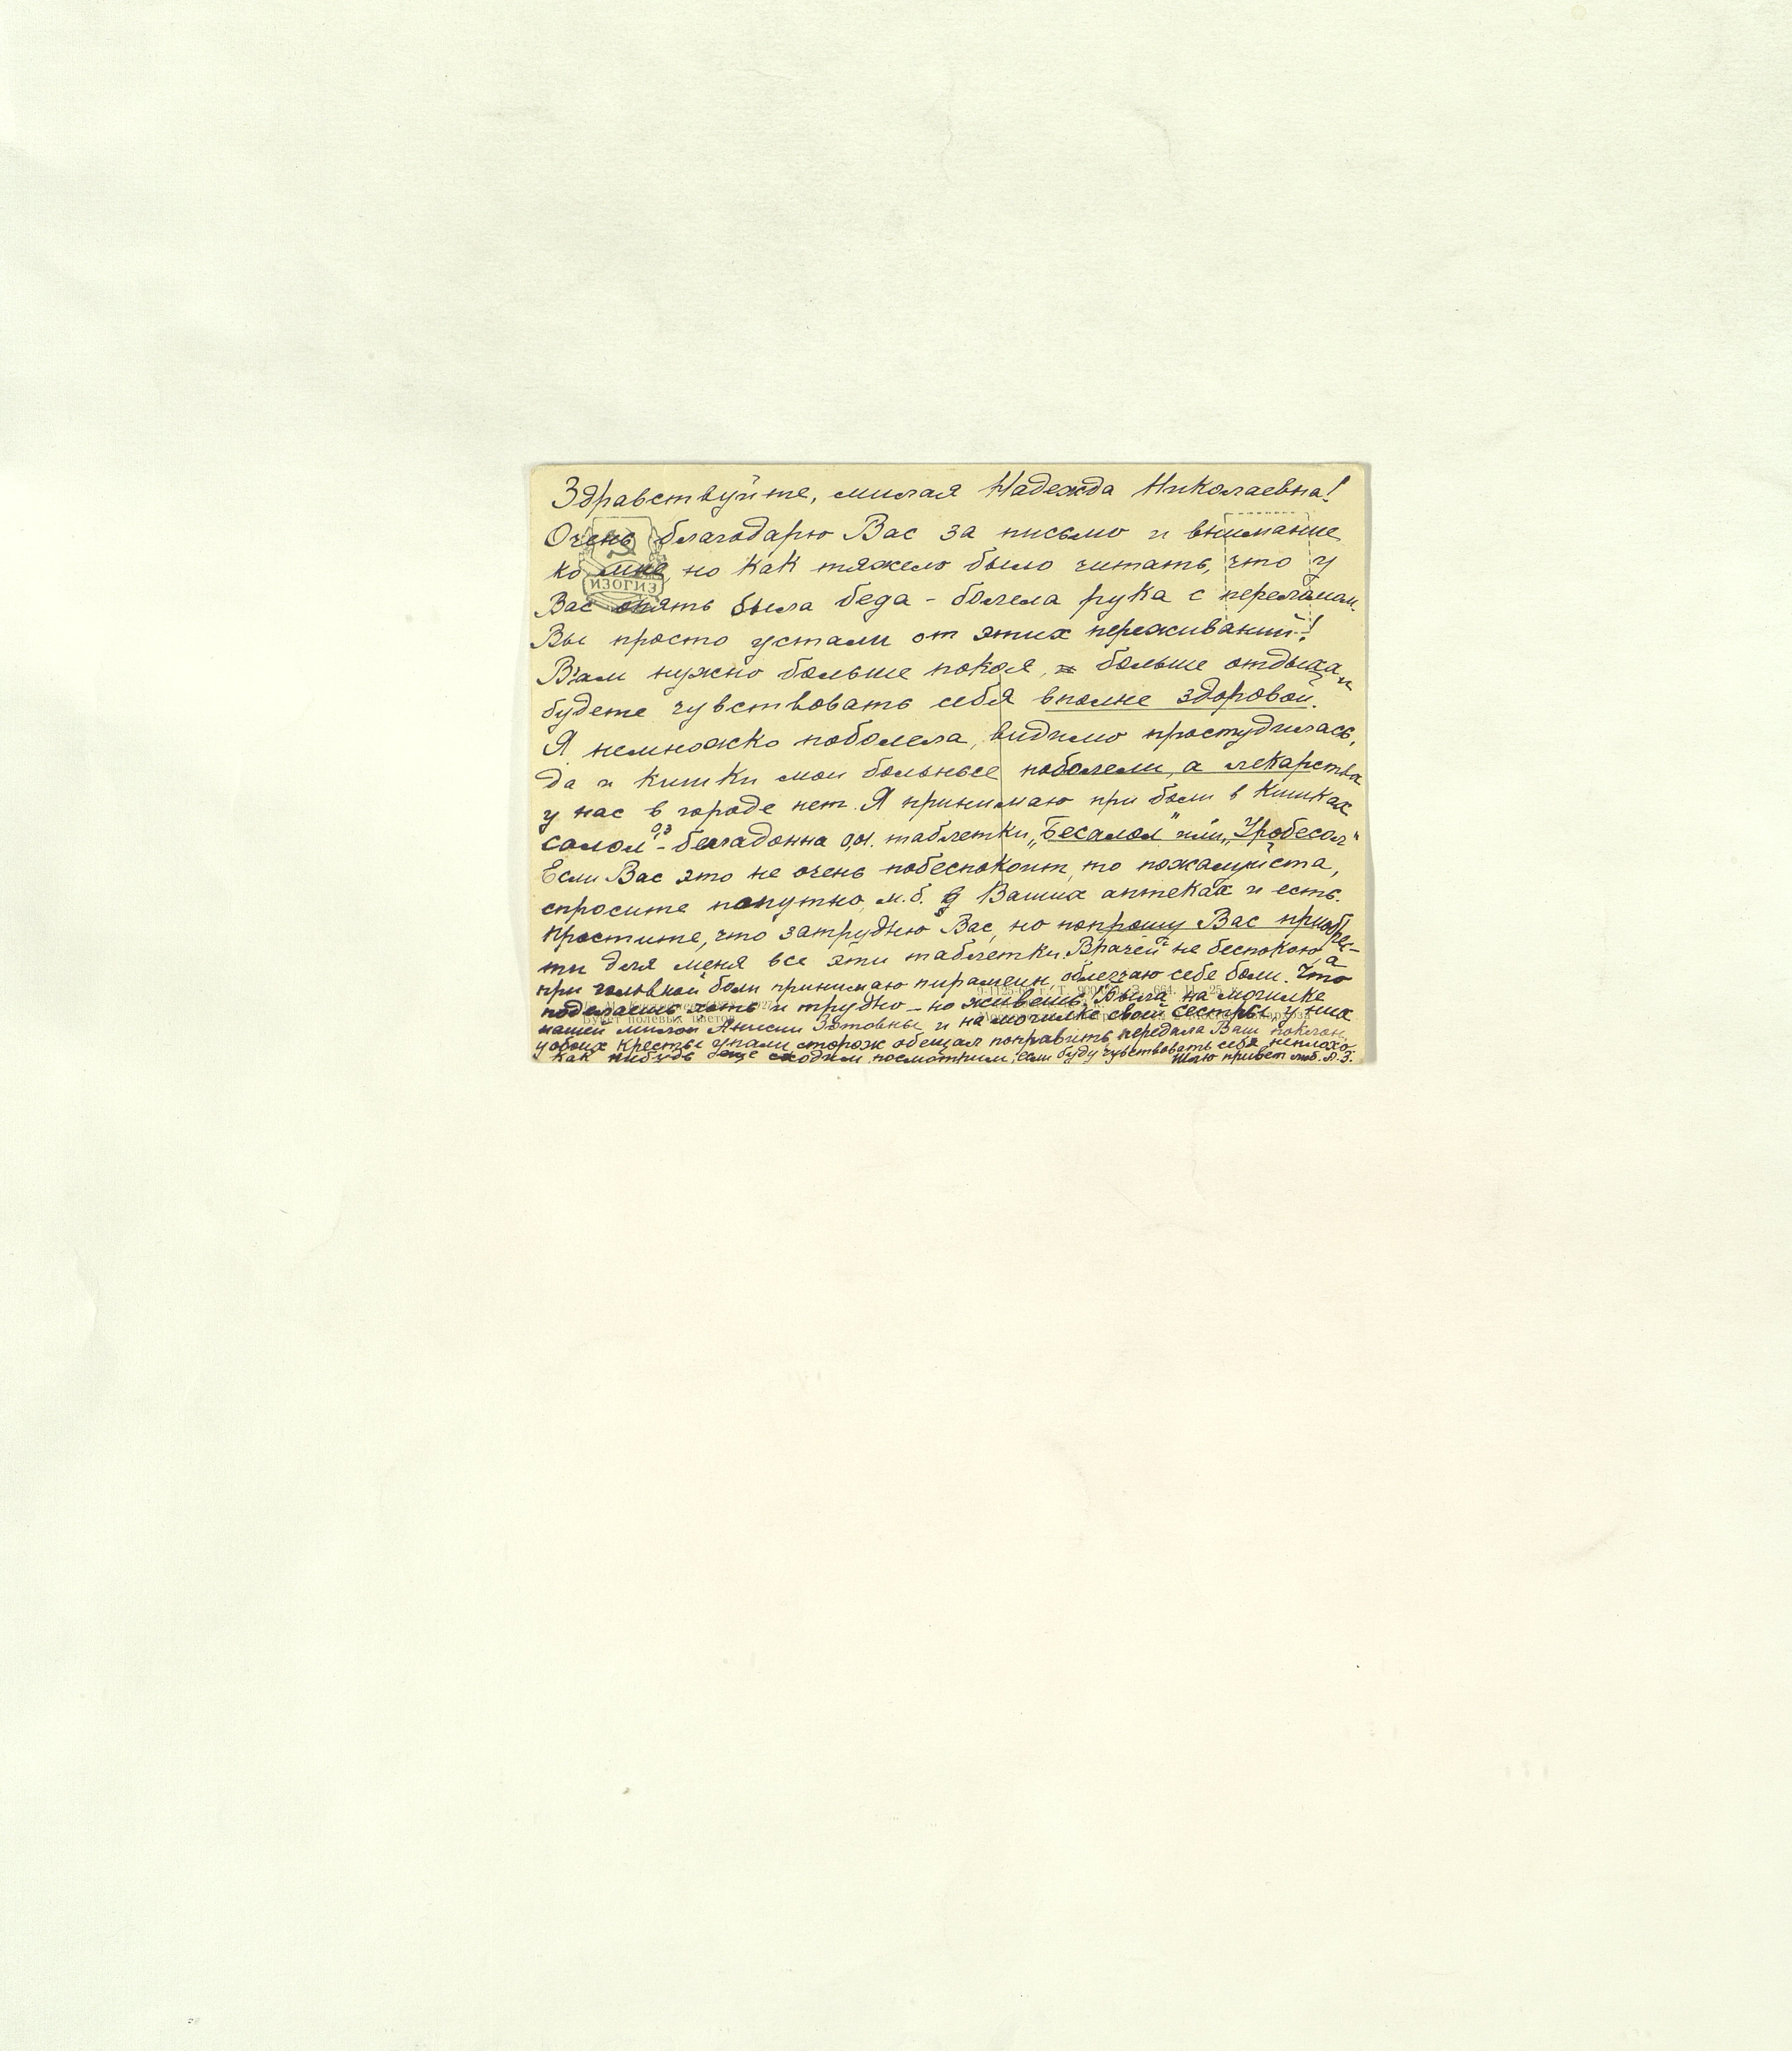 Здравствуйте, милая Надежда Николаевна!
Очень благодарю Вас за письмо и внимание
ко мне, но как тяжело было читать, что у
Вас опять была беда - болела рука с переломом.
Вы просто устали от этих переживаний!
Вам нужно больше покоя, больше отдыха и
будете чувствовать себя вполне здоровой.
Я немножко поболела, видимо простудилась,
да и кишки мои больные поболели, а лекарства
у нас в городе нет. Я принимаю при боли в кишках
салол 0,3 - белладонна 0,01. таблетки „Бесалол" или „Уробесал"
Если Вас это не очень побеспокоит, то пожалуйста,
спросите попутно, м.б. в Ваших аптеках и есть.
Простите, что затрудняю Вас, но попрошу Вас приобре-
ти для меня все эти таблетки. Врачей не беспокою, а
при головной боли принимаю пирамеин, облегчаю себе боли. Что
поделаешь хоть и трудно - но живешь. Была на могилке
нашей милой Анисии Зотовны и на могилке своей сестры у них
у обоих кресты упали, сторож обещал поправить, передала Ваш поклон.
Как нибудь еще сходим, посмотрим, если буду чувствовать себя неплохо.
Шлю привет люб. А. З.
ИЗОГИЗ
Букет полевых цветов